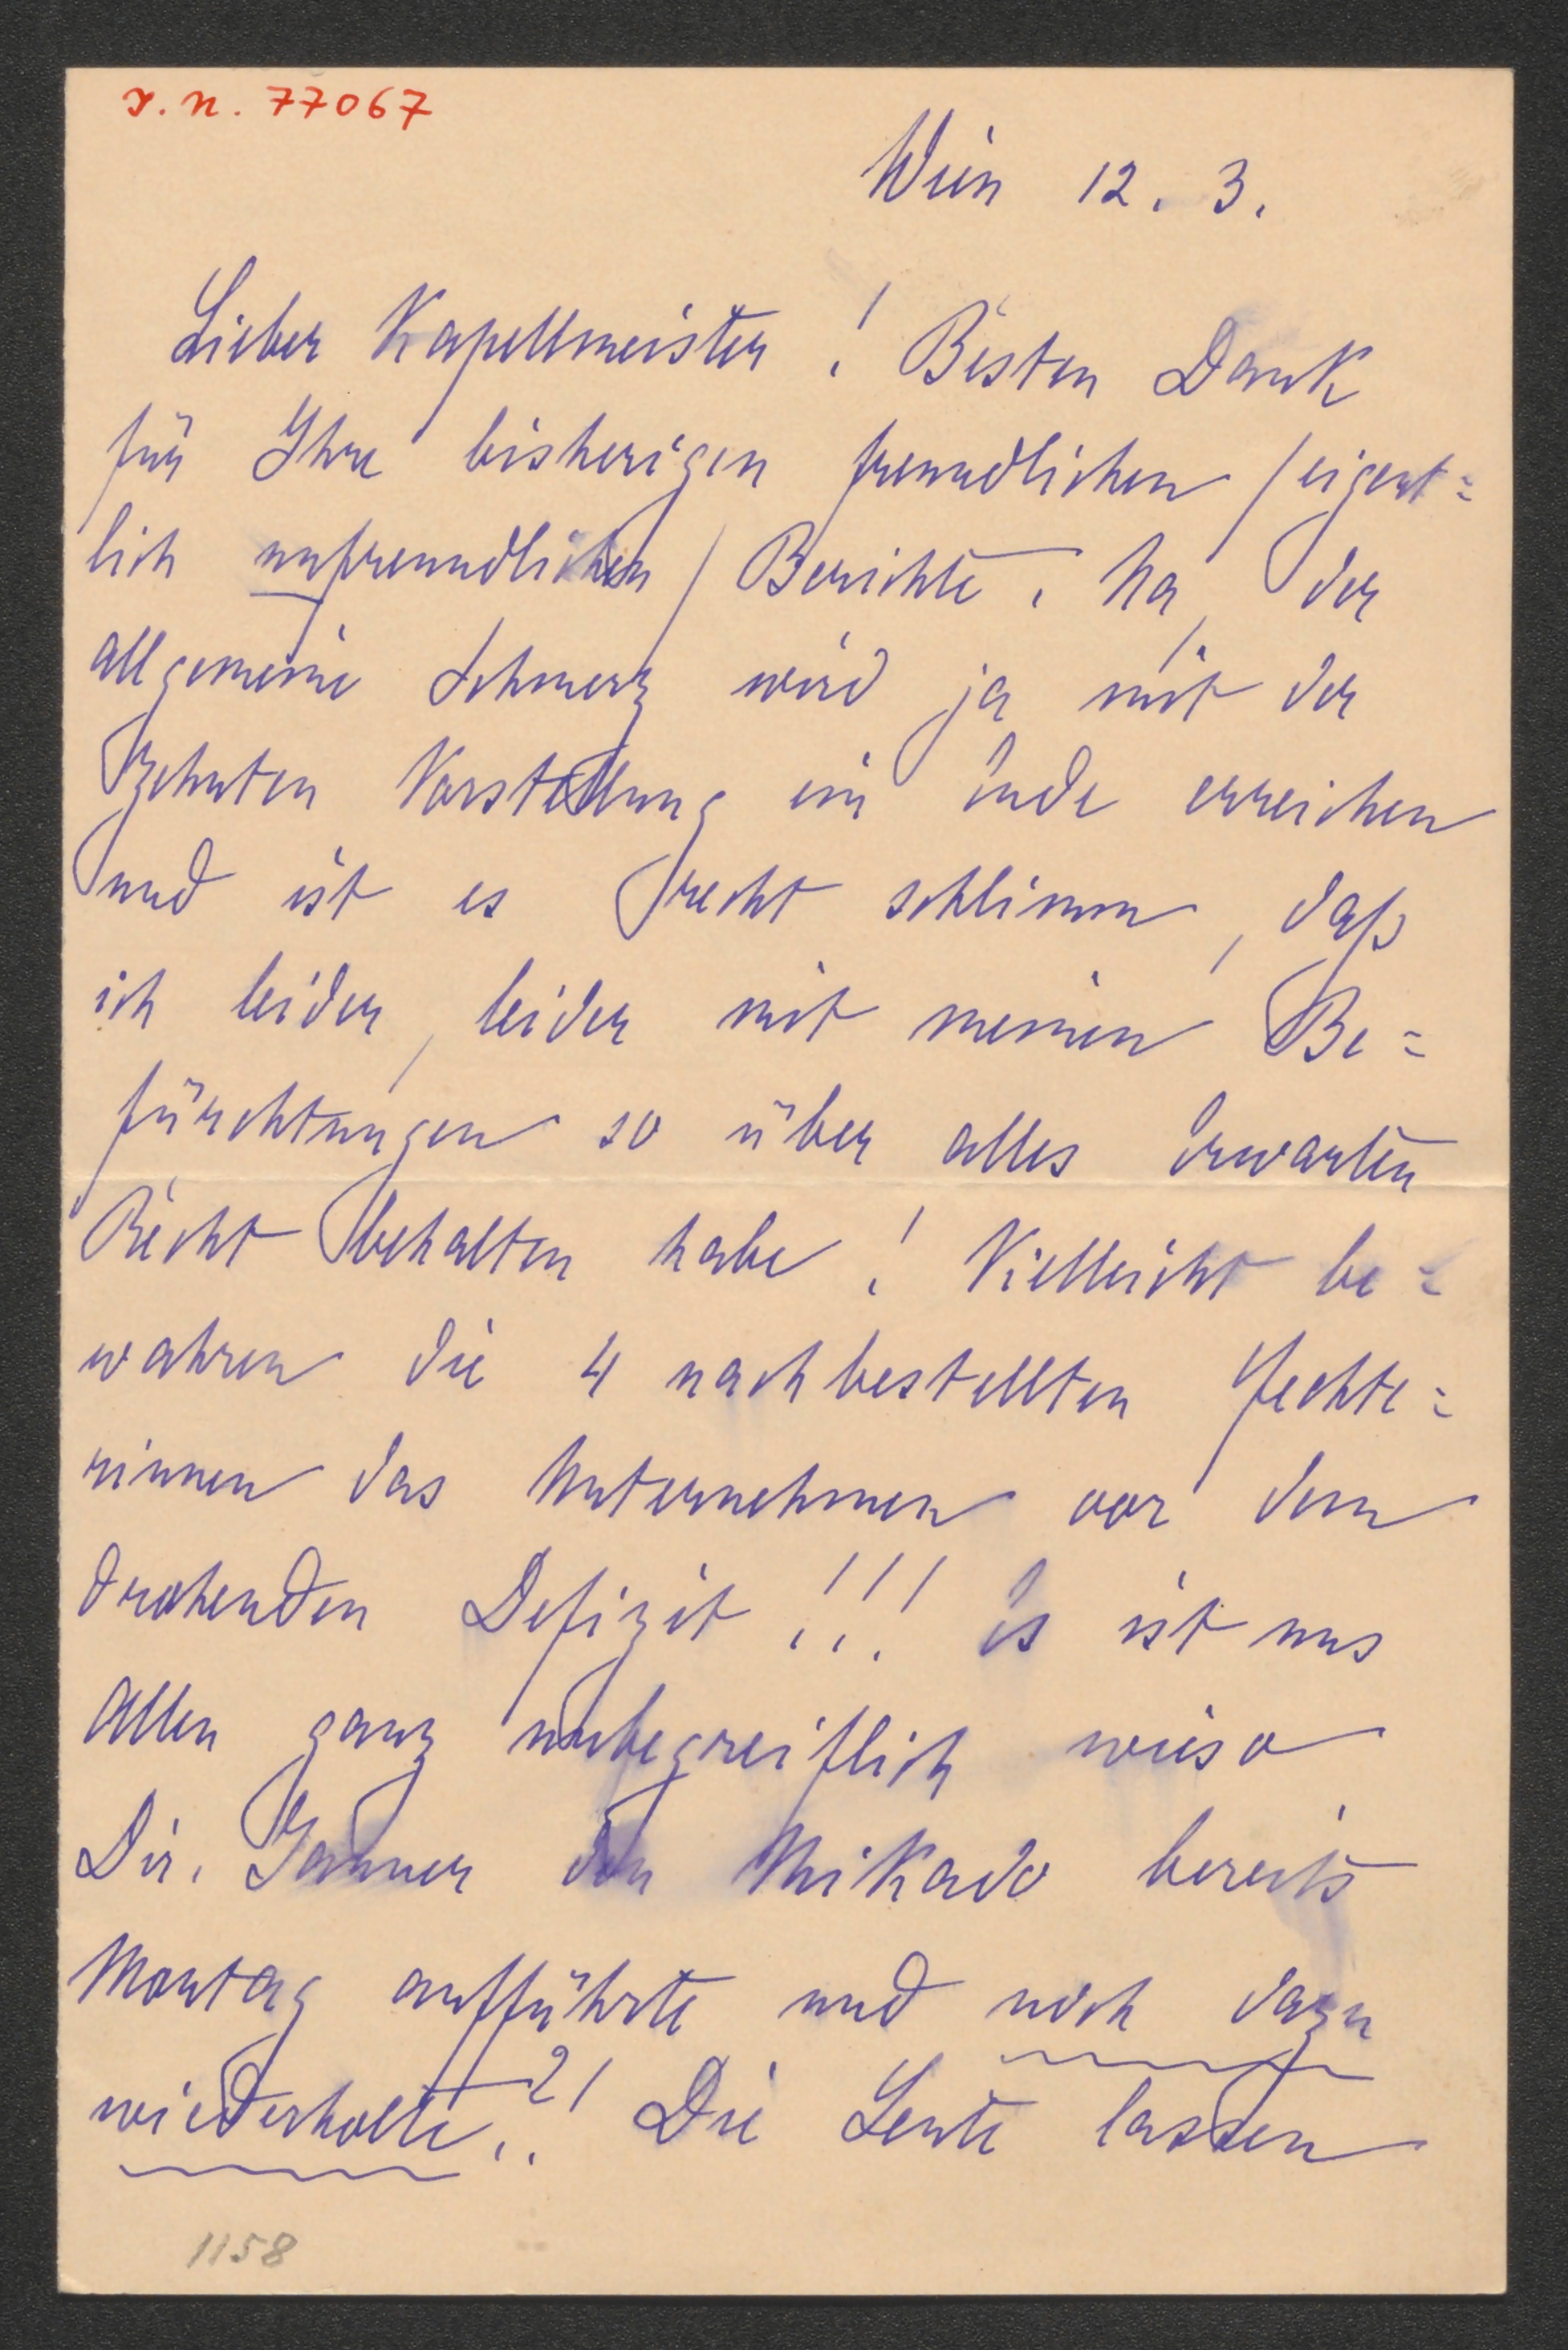 I. N. 77067
Wien 12. 3.
Lieber Kapellmeister! Besten Dank
für Ihre bisherigen freundlichen /eigent=
lich unfreundlichen/ Berichte. Na, der
allgemeine Schmerz wird ja mit der
zehnten Vorstellung ein Ende erreichen
und ist es recht schlimm, daß
ich leider, leider mit meinen Be=
fürchtungen so über alles Erwarten
Recht behalten habe! Vielleicht be=
wahren die 4 nachbestellten Fechte=
rinnen das Unternehmen vor dem
drohenden Defizit!!! Es ist uns
allen ganz unbegreiflich wieso
Dir. Jauner den Mikado bereits
Montag aufführte und noch dazu
wiederholte?! Die Leute lassen
1158